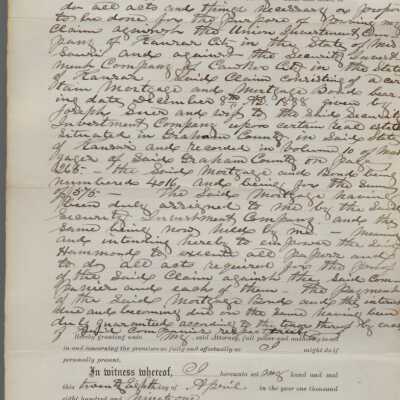 do all acts and things necessary or proper
to be done for the purpose of proving my
Claim against the Union Investment Com
pany of Kansas City in the State of Mis
souri and against the Security Invest
ment Company of Cawker City in the State
of Kansas, Said Claim consisting of a cer
tain Mortgage and Mortgage Bond bear
ing date December 8th AD 1888 given by
Joseph and wife to the Said Security
Investment Company upon certain real estate
Situated in Graham County in Said State
of Kansas and recorded in Volume 10 of Mort
gages of Said Graham County on page
265 - the Said Mortgage and Bond being
numbered 4016 and being for the Sum
of $575 - The Said Mortgage having
been duly assigned to me by the Said
Security Investment Company and the
Same being now held by me - meaning
and intending hereby to empower the Said
Hammond to execute all papers and
to do all acts required for the proof
of the Said Claim against the Said Com
panies and each of them - the payment
of the Said Mortgage Bond and the interest
due and becoming due on the Same having been
duly guaranteed according to the tenor thereof by each
of Said Companies
hereby granting unto my said Attorney, full power and authority to act
in and concerning the premises as fully and effectually as I might do if
personally present.
In witness whereof, I hereunto set my hand and seal
this twenty eighth day of April in the year one thousand
eight hundred and ninety one